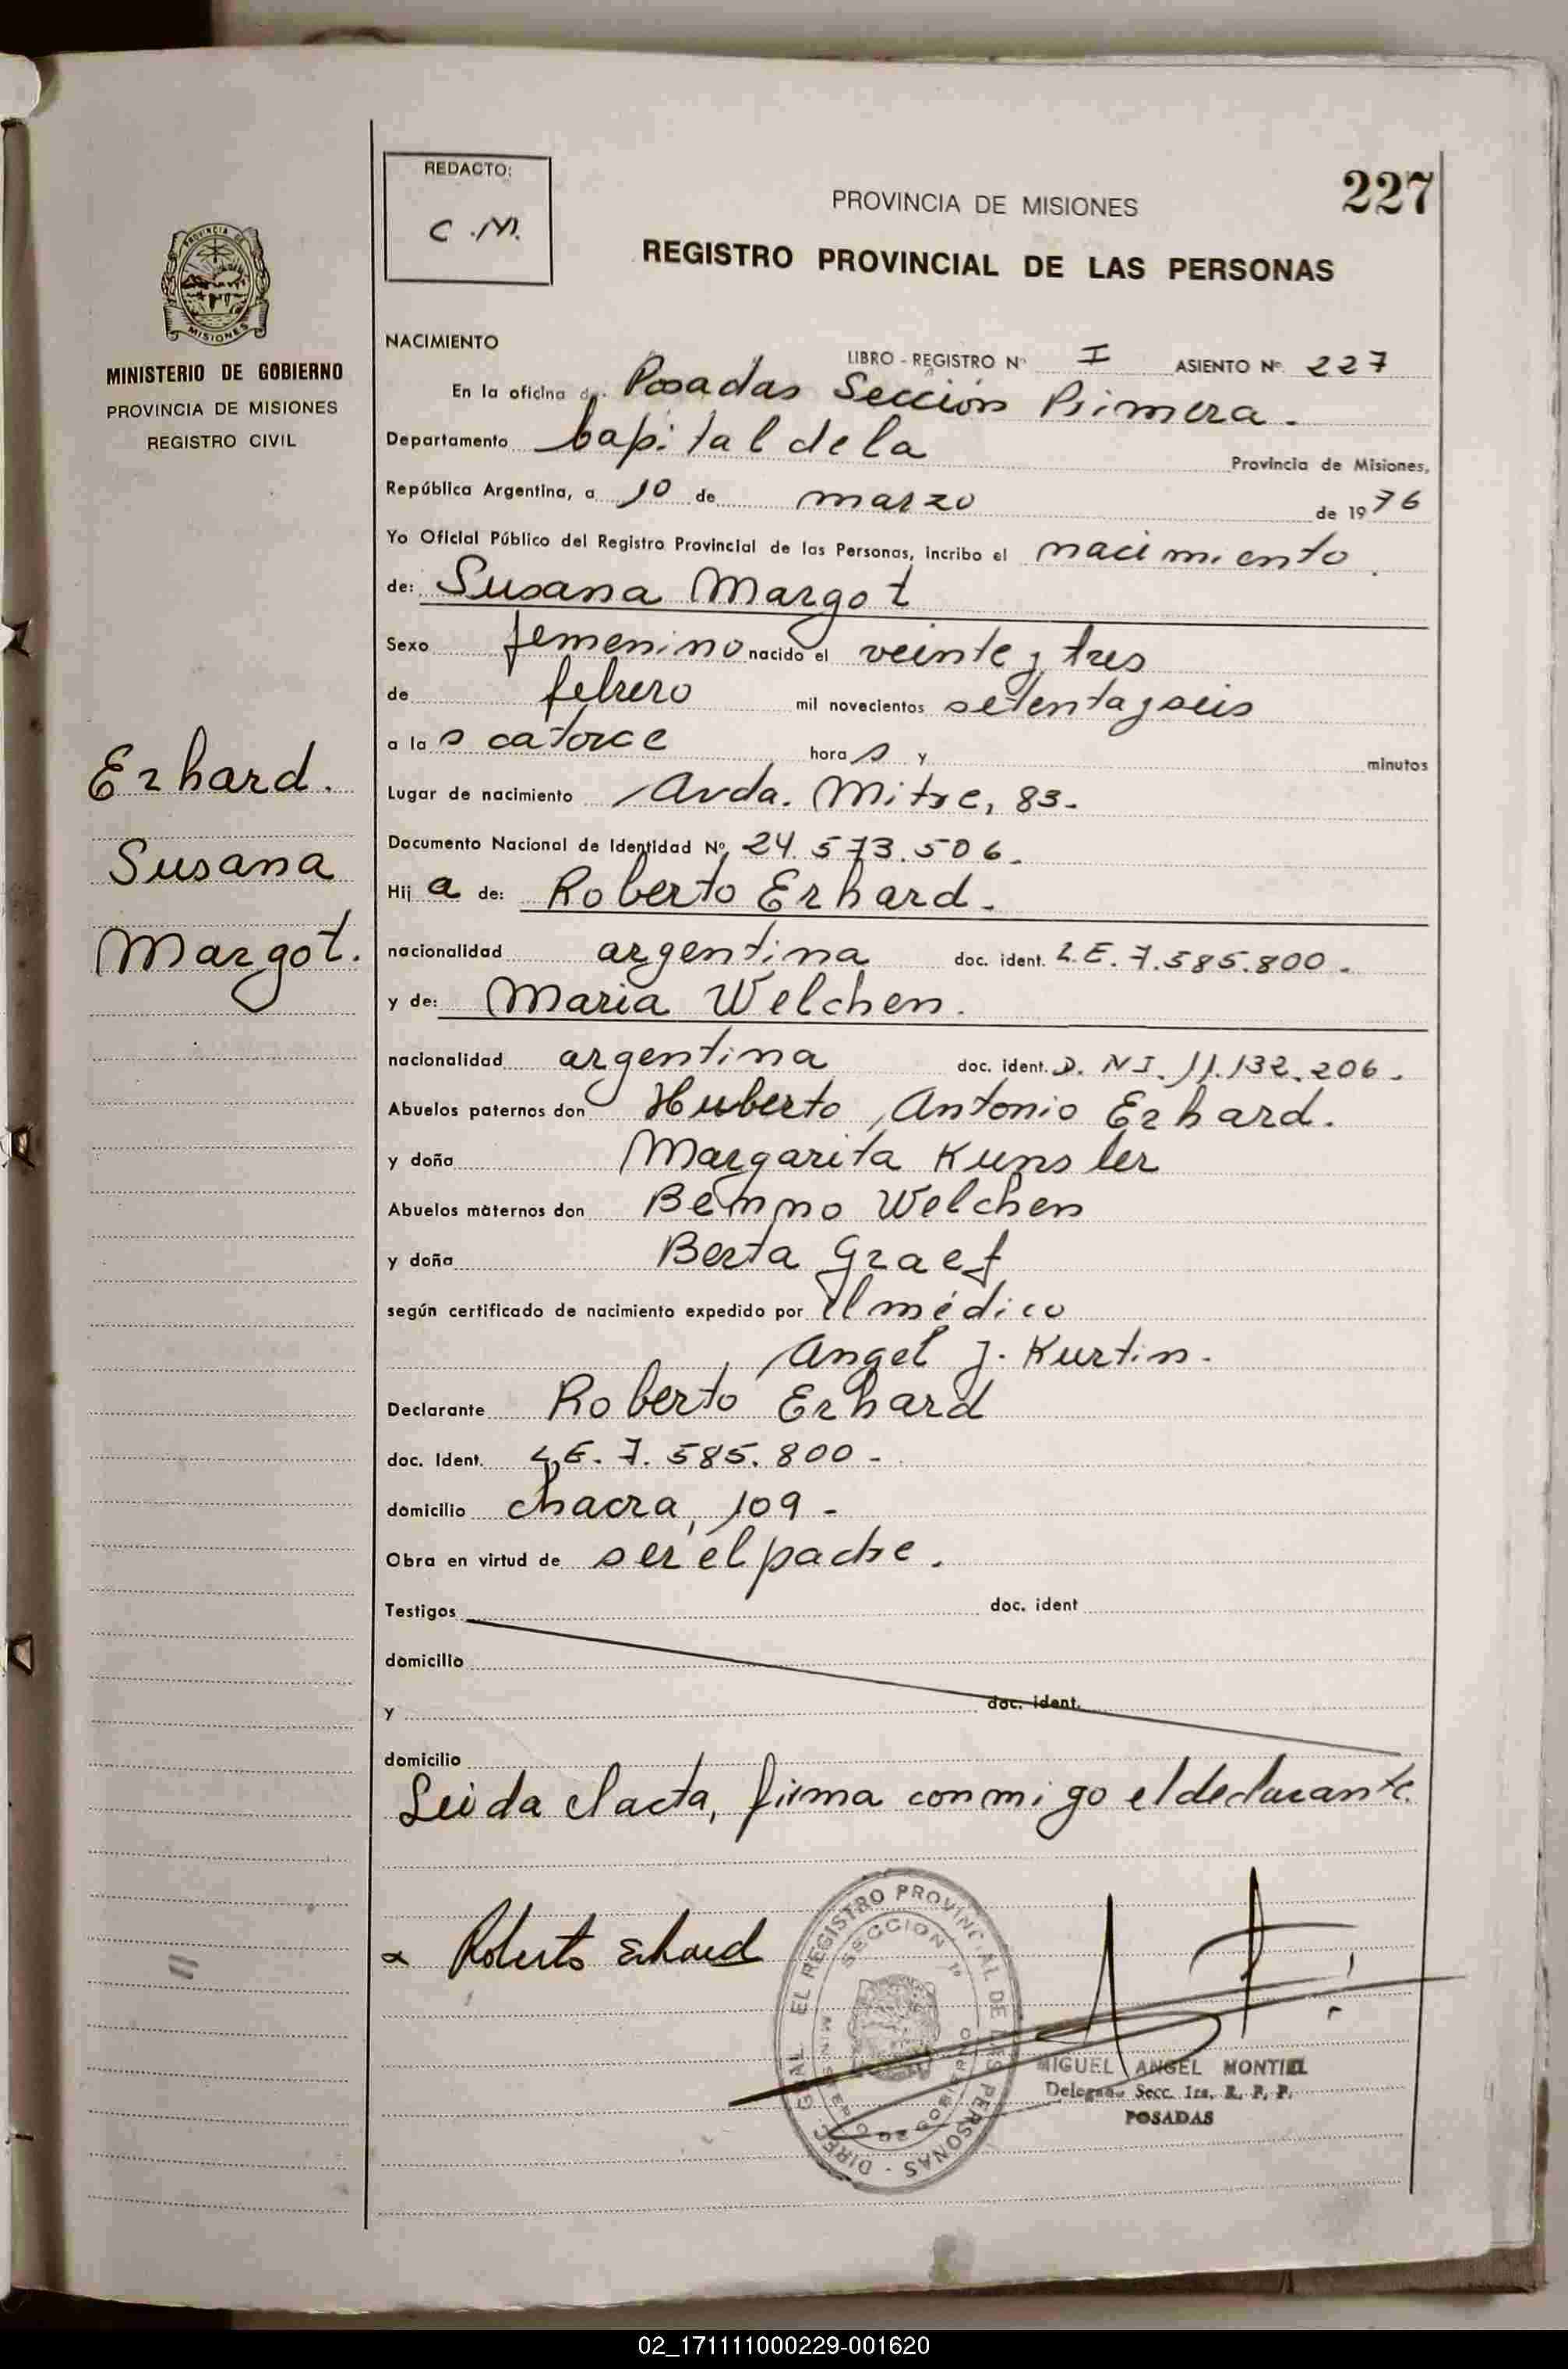 REDACTO:
C.M.
PROVINCIA DE MISIONES
227
REGISTRO PROVINCIAL DE LAS PERSONAS
PROVINCIA DE MISIONES
MINISTERIO DE GOBIERNO
PROVINCIA DE MISIONES
REGISTRO CIVIL
Erhard.
Susana
Margot.
NACIMIENTO
LIBRO - REGISTRO Nº I ASIENTO Nº 227
En la oficina de Posadas Sección Primera.
Departamento Capital de la Provincia de Misiones,
República Argentina, a 10 de marzo de 1976
Yo Oficial Público del Registro Provincial de las Personas, incribo el nacimiento.
de: Susana Margot
Sexo femenino nacido el veinte y tres
de febrero mil novecientos setenta y seis
a las catorce horas y minutos
Lugar de nacimiento Avda. Mitre, 83.
Documento Nacional de Identidad Nº 24.573.506.
Hija de: Roberto Erhard.
nacionalidad argentina doc. ident. L.E. 7.585.800.
y de: Maria Welchen.
nacionalidad argentina doc. ident. D.N.I. 11.132.206.
Abuelos paternos don Huberto Antonio Erhard.
y doña Margarita Kunsler
Abuelos maternos don Benno Welchen
y doña Berta Graef
según certificado de nacimiento expedido por el médico
Angel J. Kurtin.
Declarante Roberto Erhard
doc. Ident. L.E. 7.585.800.
domicilio chacra, 109-
Obra en virtud de ser el padre.
Testigos doc. ident
domicilio
y doc. ident.
domicilio
Leida el acta, firma conmigo el declarante.
Roberto Erhard
DIREC. GRAL. EL REGISTRO PROVINCIAL DE LAS PERSONAS
SECCION 1ª
MIGUEL ANGEL MONTIEL
Delegado Secc. 1ra. R. P. P.
POSADAS
02_171111000229-001620